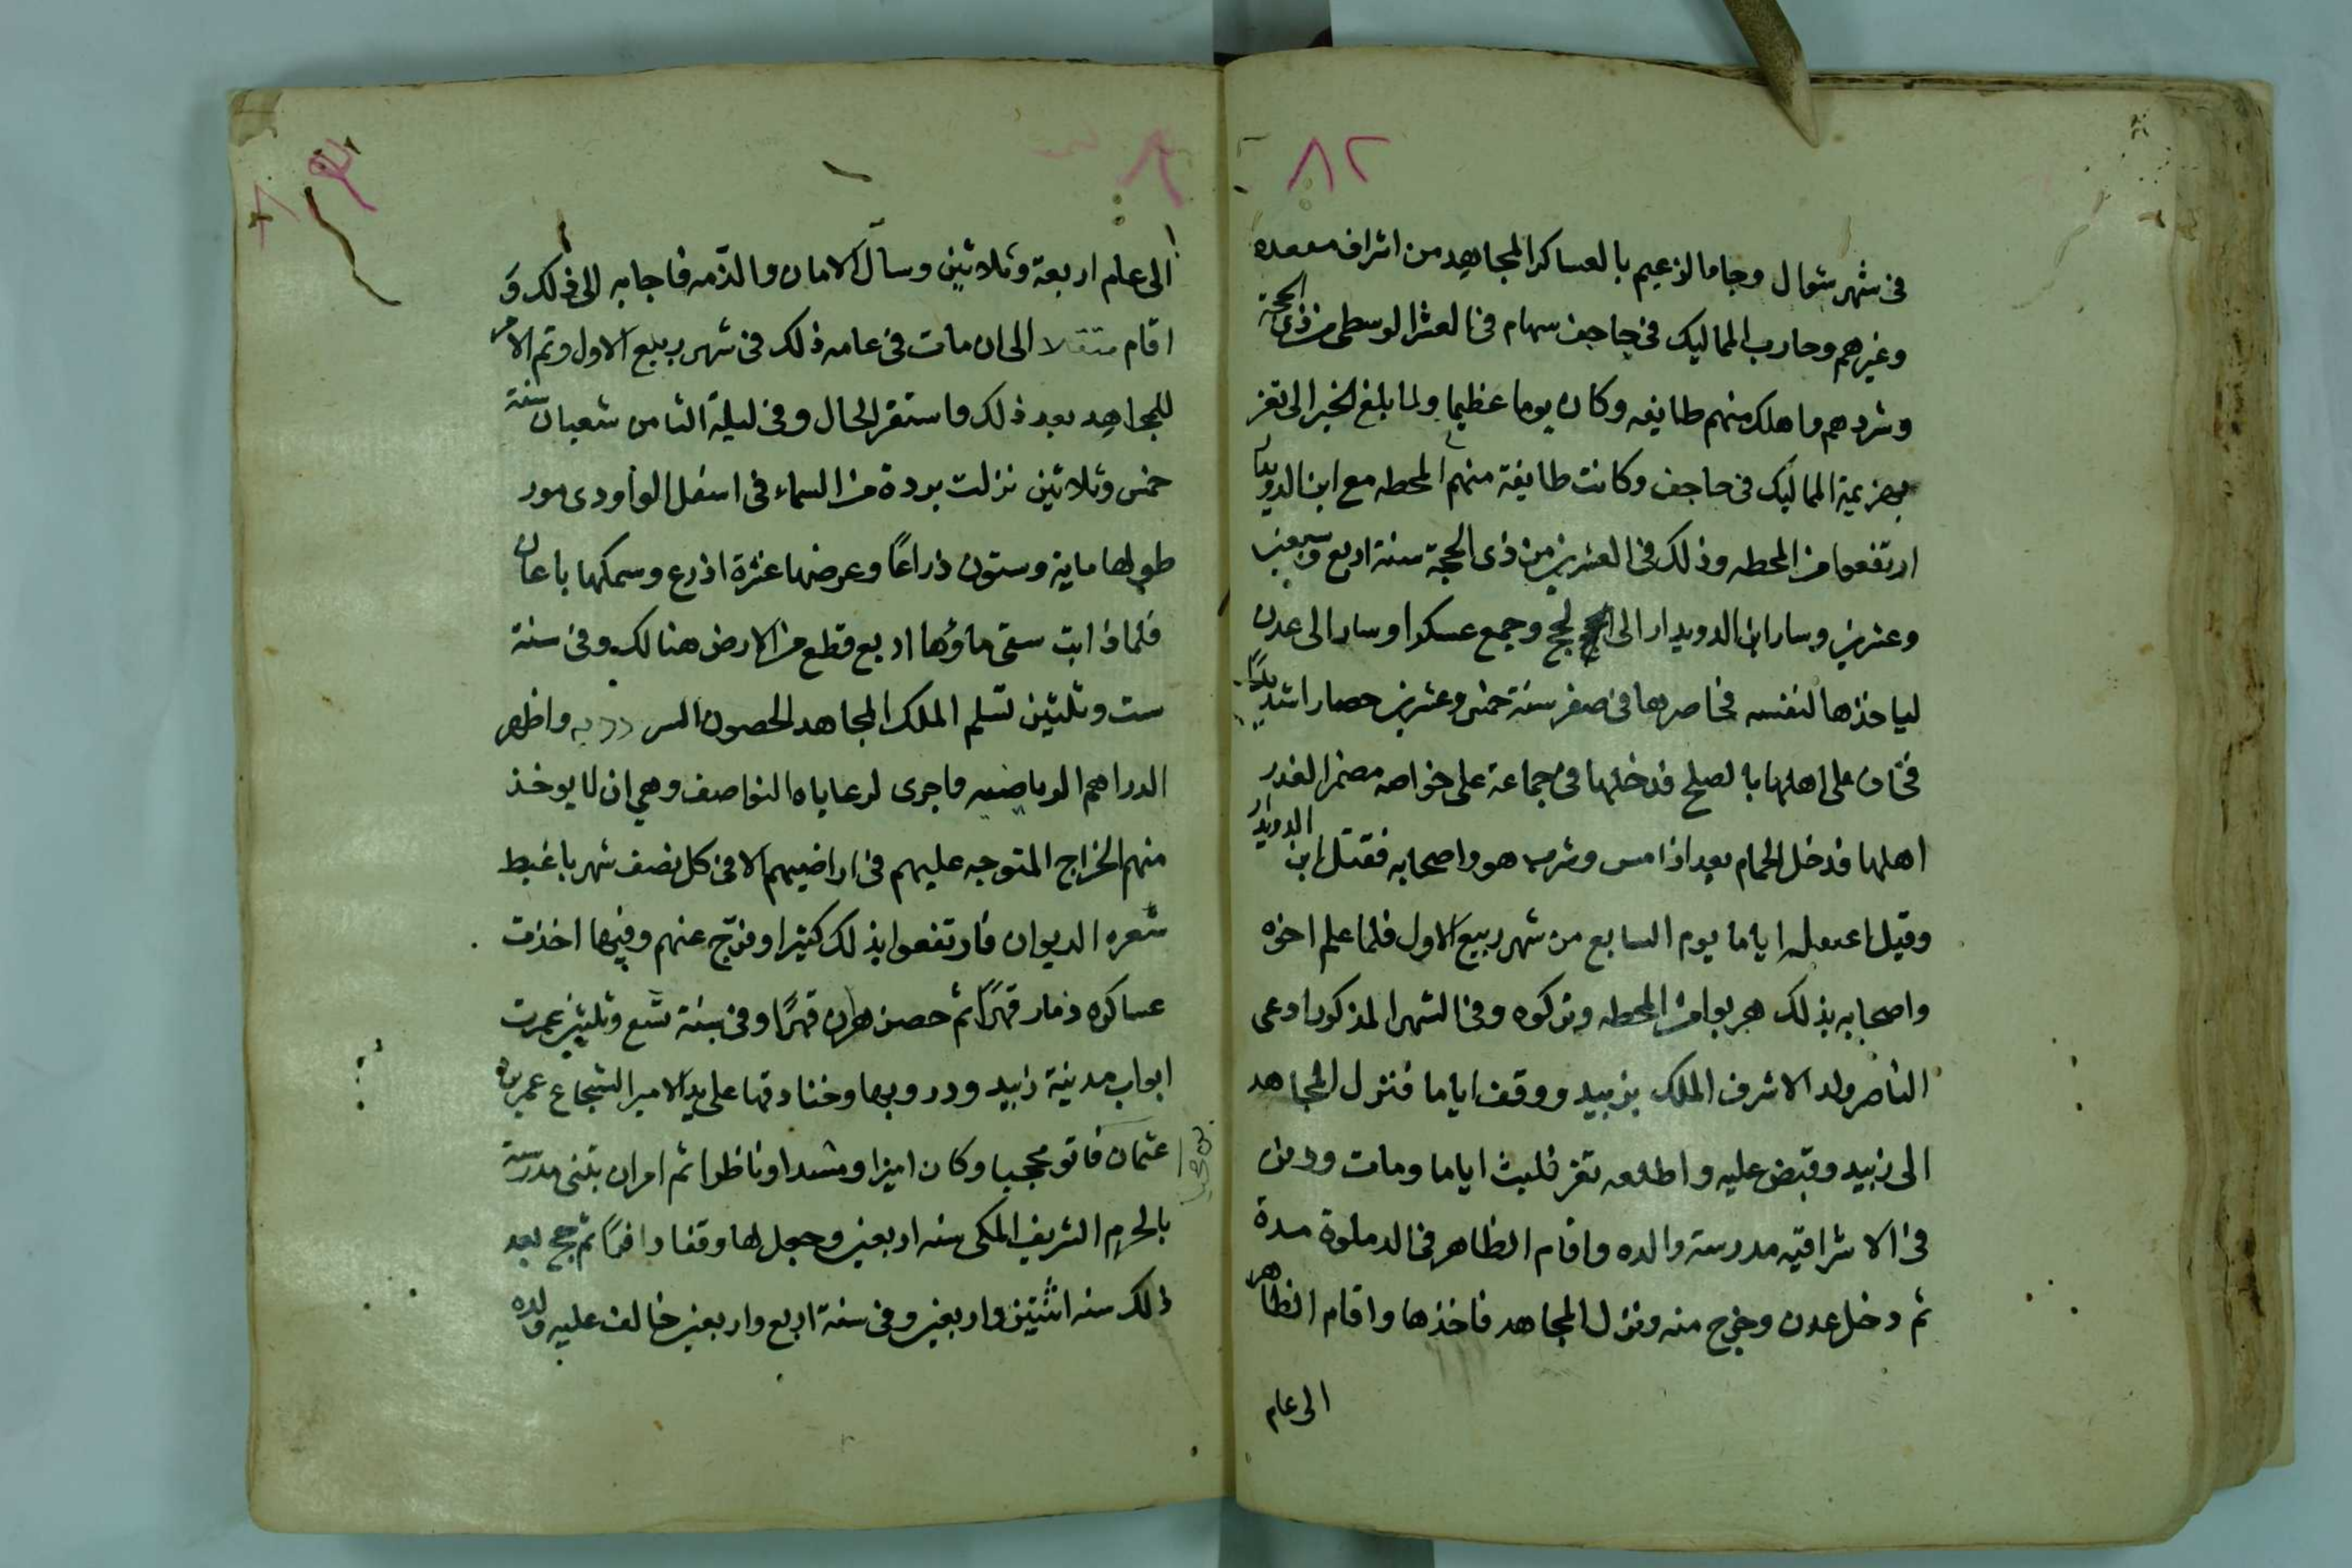 ٨٢
فى شهر شوال وجاء الزعيم بالعساكر المجاهديه من اشراف
وغيرهم وحارب المماليك فى جاحف سهام فى العشر الوسطى من ذى الحجة
وشردهم واهلك منهم طايفه وكان يوما عظيما ولما بلغ الخبر الى تعز
بهزيمة المماليك فى جاحف وكانت طايفة منهم المحطه مع ابن الدويدار
ارتفعوا من المحطه وذلك فى العشرين من ذى الحجة سنة اربع
وعشرين وسار ابن الدويدار الى لحج وجمع عسكرا وسار الى عدن
لياخذها لنفسه فحاصرها فى صفر سنة خمس وعشرين حصارا شديدًا
على اهلها بالصلح فدخلها فى جماعة على خواصه مضمر الغدر
اهلها فدخل الحمام بعد اذ امسى وشرب هو واصحابه فقتل ابن الدويدار
وقيل اعتقله اياما يوم السابع من شهر ربيع الاول فلما علم اخوه
واصحابه بذلك هربوا من المحطه وتركوه وفى الشهر المذكور ادعى
الناصر ولد الاشرف الملك بزبيد ووقف اياما فنزل المجاهد
الى زبيد وقبض عليه واطلعه تعز فلبث اياما ومات ودفن
فى الاشرافيه مدرسة والده واقام الظاهر فى الدملوة مدة
ثم دخل عدن وخرج منه ونزل المجاهد فاخذها واقام الظاهر
الى عام
الى عام اربعة وثلاثين وسأل الامان والذمه فاجابه الى ذلك و
اقام الى ان مات فى عامه ذلك فى شهر ربيع الاول وتم الامر
للمجاهد بعد ذلك واستقر الحال وفى ليلة الثامن شعبان سنة
خمس وثلاثين نزلت بردة من السماء فى اسفل الوادى مور
طولها ماية وستون ذراعًا وعرضها عشرة اذرع وسمكها باعان
فلما ذابت سقى ماؤها اربع قطع من الارض هنالك وفى سنة
ست وثلثين تسلم الملك المجاهد الحصون واظهر
الدراهم الرياضيه واجرى لرعاياه النواصف وهى ان لا يوخذ
منهم الخراج المتوجه عليهم فى اراضيهم الا فى كل نصف شهر باغبط
سعره الديوان فارتفعوا بذلك كثيرا وفرّج عنهم وفيها اخذت
عساكره ذمار قهرًا ثم حصن هران قهرًا وفى سنة تسع وثلثين عمرت
ابواب مدينة زبيد ودروبها وخنادقها على يد الامير الشجاع عمر بن
عثمان وكان اميرا ومشدا وناظرا ثم امر ان بتنى مدرسة
بالحرم الشريف المكى سنه اربعين وجعل لها وقفا وافرًا ثم حج بعد
ذلك سنه اثنتين واربعين وفى سنة اربع واربعين خالف عليه ولده